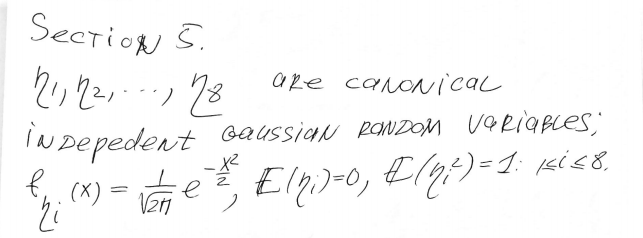 Section 5.
η₁, η₂, ..., η₈ are canonical
indepedent Gaussian random variables;
f_{η_i}(x) = \frac{1}{\sqrt{2π}} e^{-\frac{x^2}{2}}, E(η_i)=0, E(η_i^2)=1: 1≤i≤8.